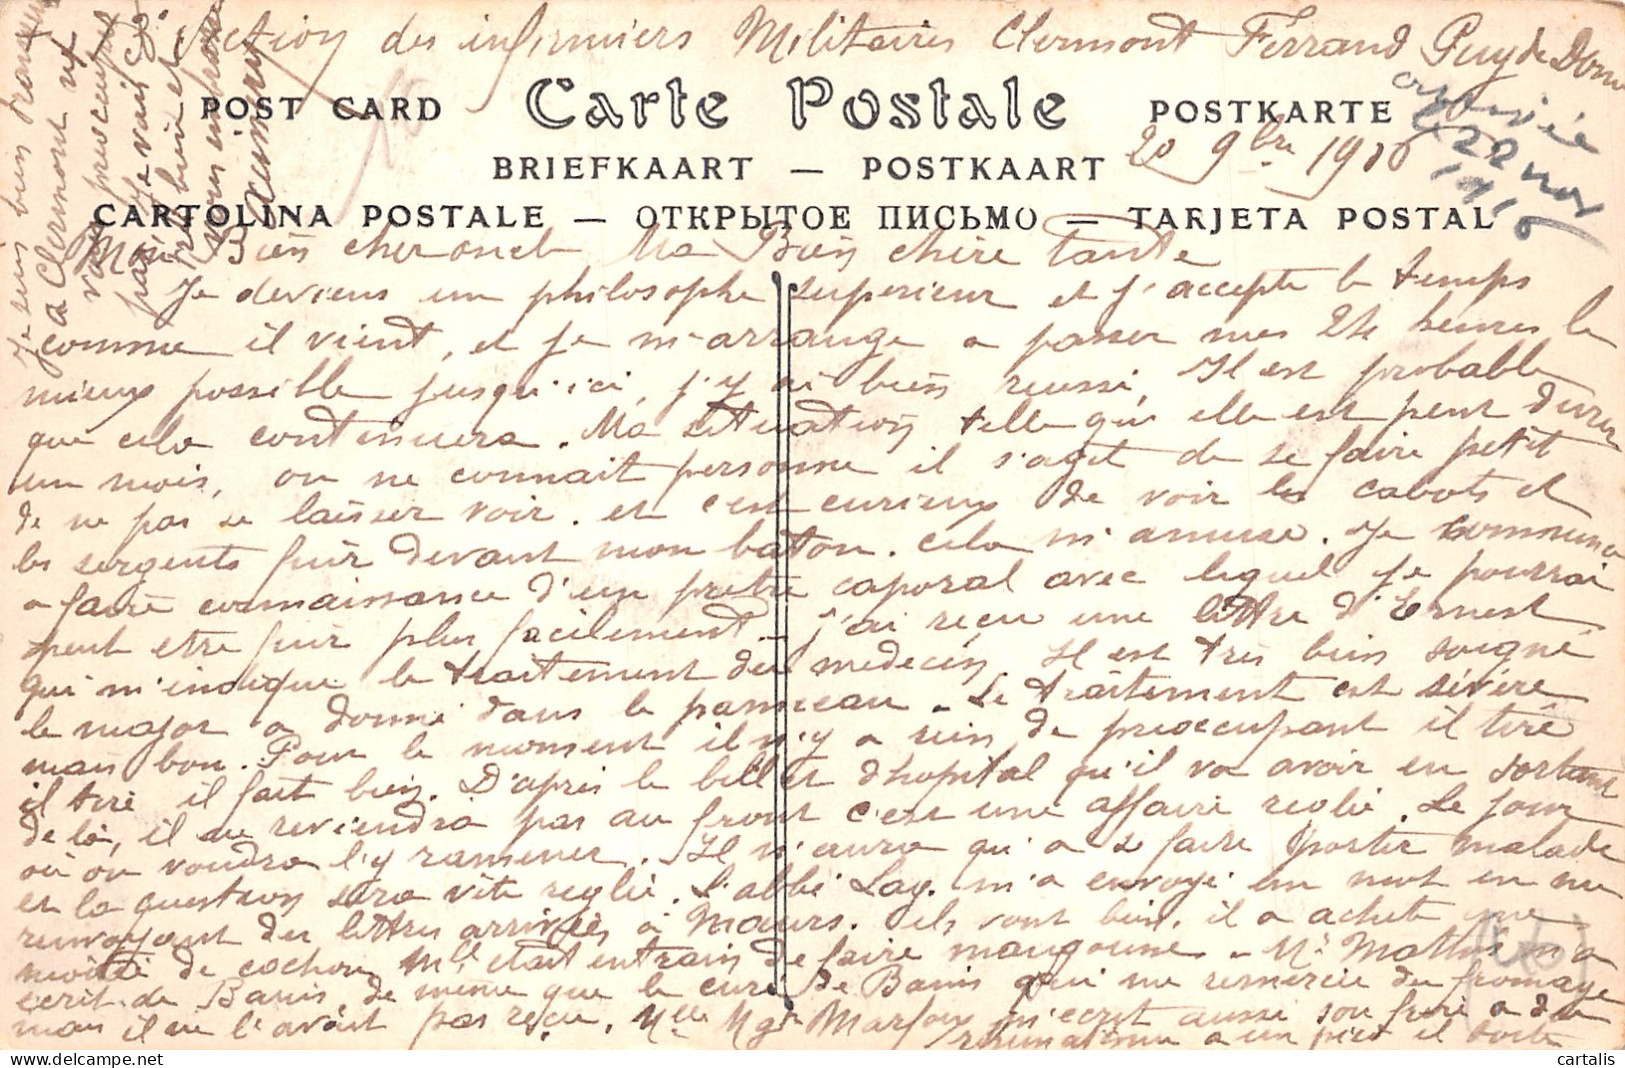 Section des infirmiers Militaires Clermont Ferrand Puy de Dome
POST CARD Carte Postale POSTKARTE
arrivée
le 22 nov
1916
BRIEFKAART — POSTKAART 20 9bre 1916
CARTOLINA POSTALE — ОТКРЫТОЕ ПИСЬМО — TARJETA POSTAL
Mon Bien cher oncle Ma Bien chère tante
Je deviens un philosophe superieur et j'accepte le temps
comme il vient, et je m'arrange a passer mes 24 heures le
mieux possible jusqu'ici, j'y ai bien reussi, Il est probable
que cela continuera. Ma situation telle qu'elle est peut durer
un mois, on ne connait personne il s'agit de se faire petit
de ne pas se laisser voir. et c'est curieux de voir les cabots et
les sergents fuir devant mon baton. cela m'amuse. Je commence
a faire connaissance d'un pretre caporal avec lequel je pourrai
peut etre fuir plus facilement - j'ai reçu une lettre d'Ernest
qui m'indique le traitement du medecin Il est très bien soigné
le major a donné dans le panneau - Le traitement est sévère
mais bon. Pour le moment il n'y a rien de préoccupant il tire
il tire il fait bien. D'après le billet d'hopital qu'il va avoir en sortant
de là, il ne reviendra pas au front c'est une affaire reglée. Le jour
où on voudra l'y ramener. Il n'aura qu'a se faire porter malade
et la question sera vite reglée. L'abbé Lay. m'a envoyé un mot en me
renvoyant des lettres arrivées à Maurs. ils vont bien, il a acheté une
moitié de cochon Mlle etait entrain de faire mangoune - Mr Mathieu m'a
ecrit de Banis, de meme que le curé de Banis qui me remercie du fromage
mais il ne l'avait pas reçu. Melle Mgte Marfoux m'ecrit aussi son frere a du
rhumatisme a un pied il boite
Je suis bien
a Clermont et
vous preoccupez
pas Je vais
très bien et
vous embrasse